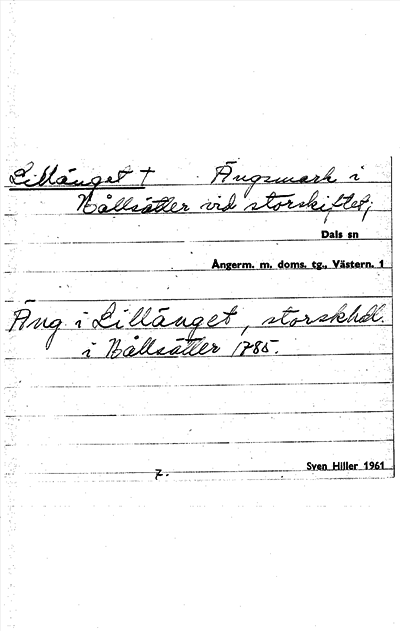 Lillänget † Ängsmark i
Hållsätter vid storskiftet;
Dals sn
Ångerm. m. doms. tg., Västern. 1
Äng i Lillänget, storskhdl.
i Hållsätter 1785.
7.
Sven Hiller 1961